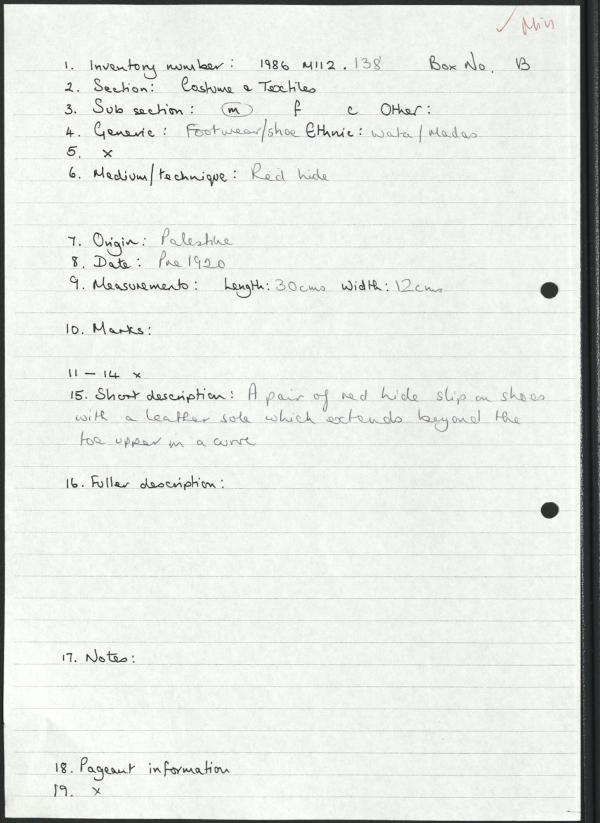 ✓ Min
1. Inventory number: 1986 M112.138 Box No. B
2. Section: Costume & Textiles
3. Sub section: m f c Other:
4. Generic: Footwear/shoe Ethnic: wata/Madas
5. x
6. Medium/technique: Red hide
7. Origin: Palestine
8. Date: Pre 1920
9. Measurements: Length: 30cms Width: 12cms
10. Marks:
11 – 14 x
15. Short description: A pair of red hide slip on shoes
with a leather sole which extends beyond the
toe upper in a curve
16. Fuller description:
17. Notes:
18. Pageant information
19. x